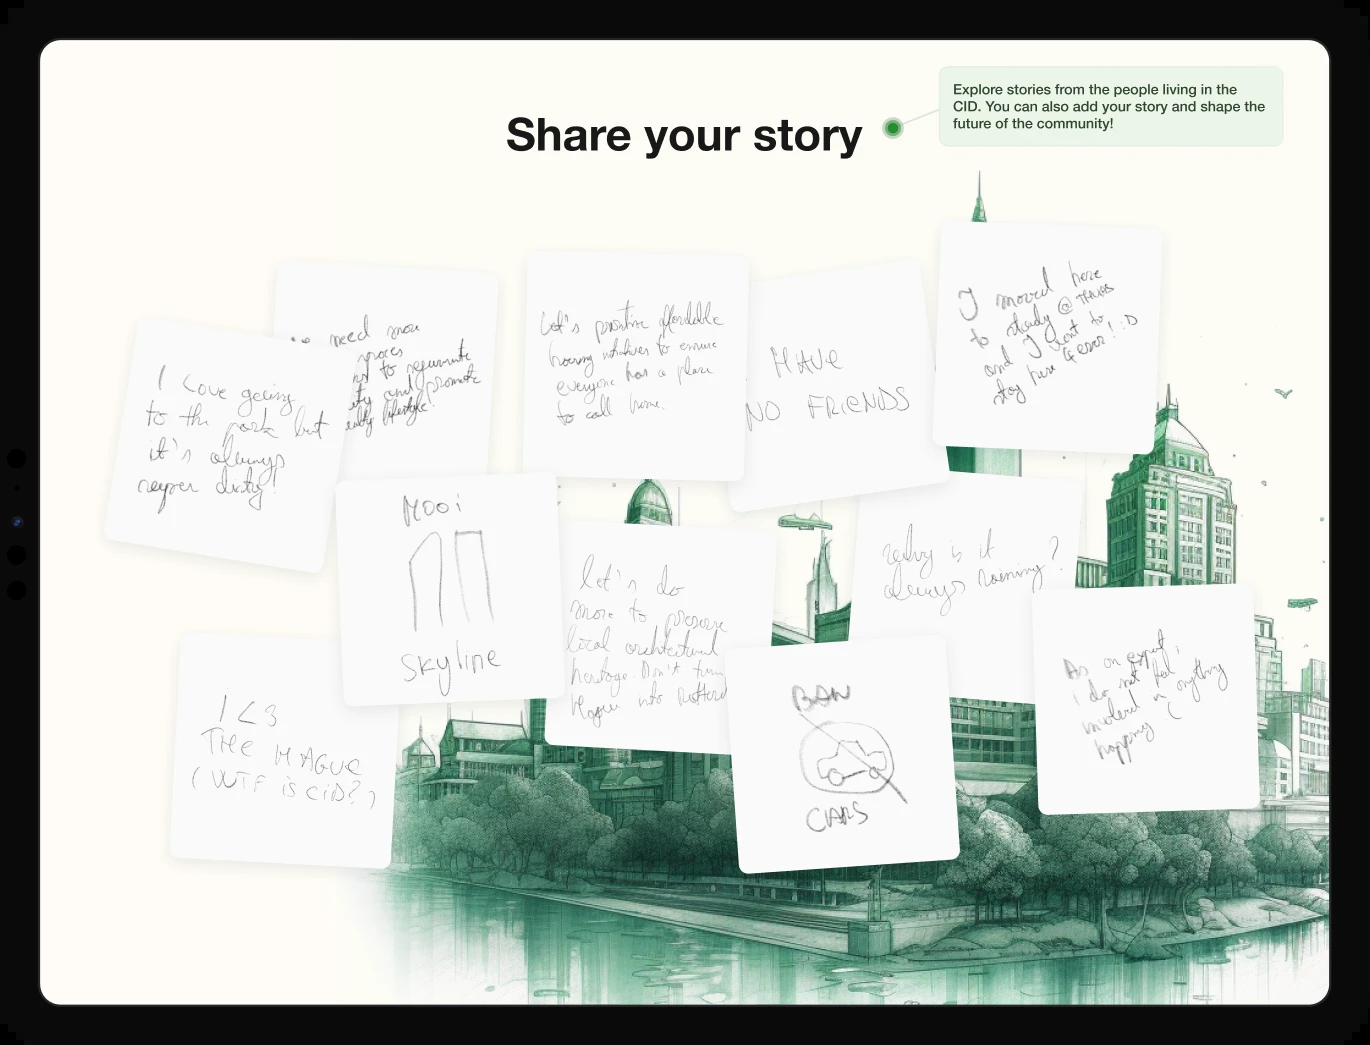 Share your story
Explore stories from the people living in the
CID. You can also add your story and shape the
future of the community!
need more
spaces
to rejuvenate
and promote
lifestyle.
I Love going
to the park but
it's always
super dirty!
Let's prioritise affordable
housing initiatives to ensure
everyone has a place
to call home.
HAVE
NO FRIENDS
I moved here
to study @ THUAS
and I want to
stay here 4 ever! :D
MOOi
SKyline
let's do
more to preserve
local architectural
heritage. Don't turn
Hague into
why is it
always raining?
I <3
THE HAGUE
(WTF is CiD?)
BAN
CARS
As an expat,
i do not feel
involved in anything
happening :(